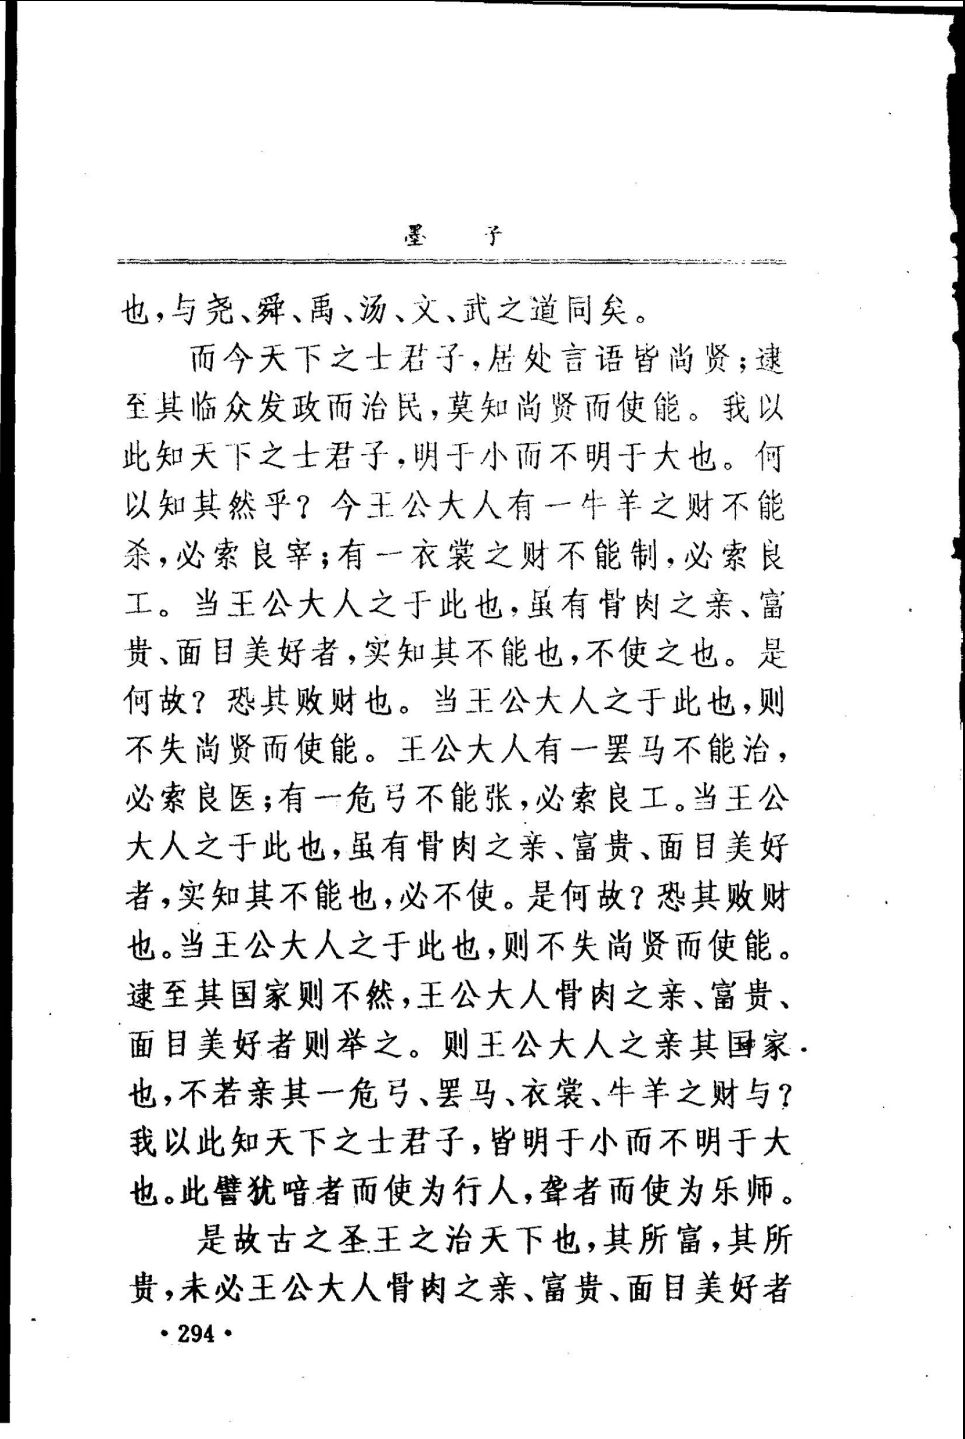 墨 子
也，与尧、舜、禹、汤、文、武之道同矣。
而今天下之士君子，居处言语皆尚贤；逮
至其临众发政而治民，莫知尚贤而使能。我以
此知天下之士君子，明于小而不明于大也。何
以知其然乎？今王公大人有一牛羊之财不能
杀，必索良宰；有一衣裳之财不能制，必索良
工。当王公大人之于此也，虽有骨肉之亲、富
贵、面目美好者，实知其不能也，不使之也。是
何故？恐其败财也。当王公大人之于此也，则
不失尚贤而使能。王公大人有一罢马不能治，
必索良医；有一危弓不能张，必索良工。当王公
大人之于此也，虽有骨肉之亲、富贵、面目美好
者，实知其不能也，必不使。是何故？恐其败财
也。当王公大人之于此也，则不失尚贤而使能。
逮至其国家则不然，王公大人骨肉之亲、富贵、
面目美好者则举之。则王公大人之亲其国家
也，不若亲其一危弓、罢马、衣裳、牛羊之财与？
我以此知天下之士君子，皆明于小而不明于大
也。此譬犹喑者而使为行人，聋者而使为乐师。
是故古之圣王之治天下也，其所富，其所
贵，未必王公大人骨肉之亲、富贵、面目美好者
·294·